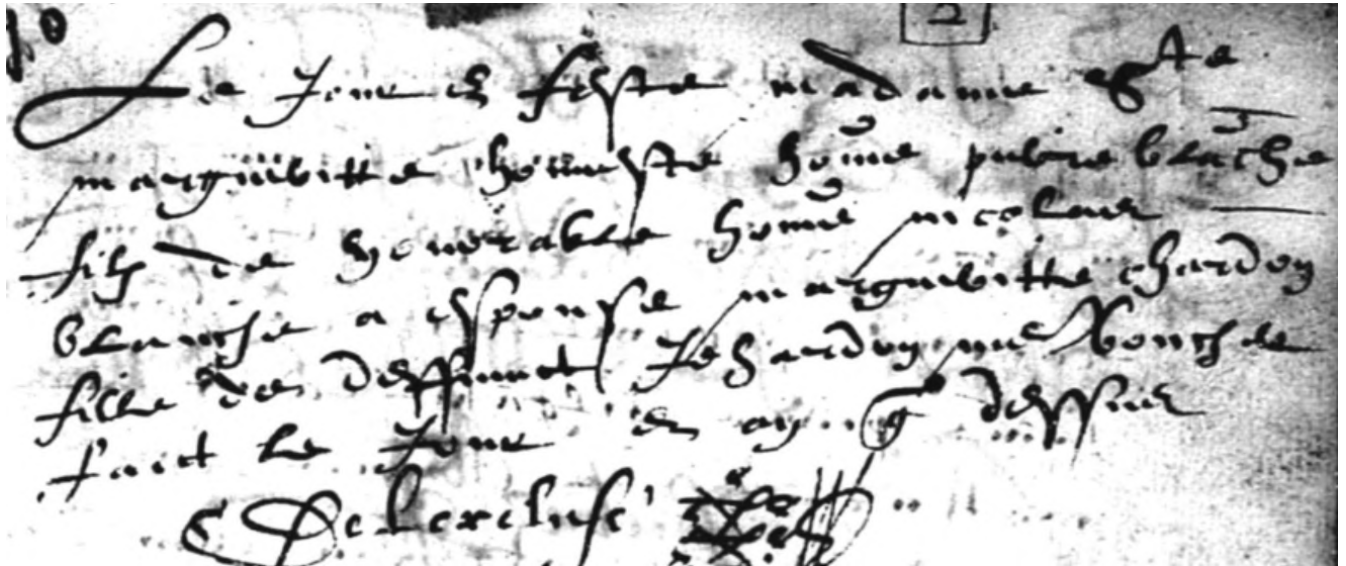 Le Jour & feste madame Ste
margueritte honneste home pierre blāche
filz de honorable home nicolas
blanche a espouse margueritte chardon
fille de deffunct Jehardon me bouch de
faict le Jour & an q dessus
Delecluse